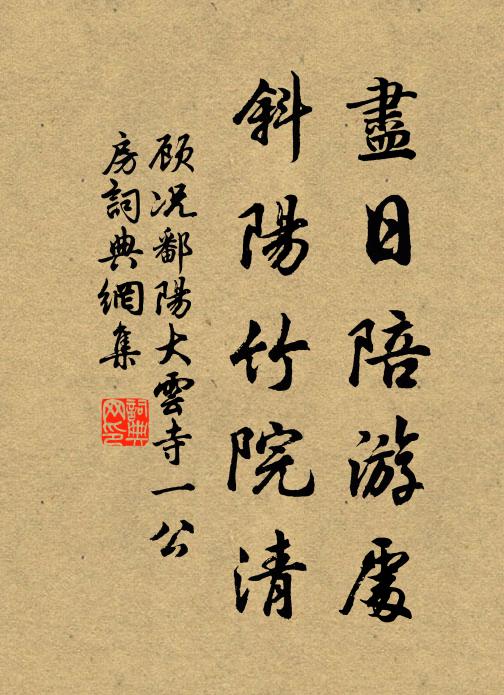 盡日陪游處
斜陽竹院清
顾况鄱陽大雲寺一公
房詞典網集
詞典
网印